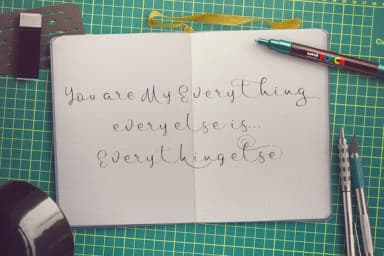 You are My Everything
every else is...
Everythingelse
uni
POSCA